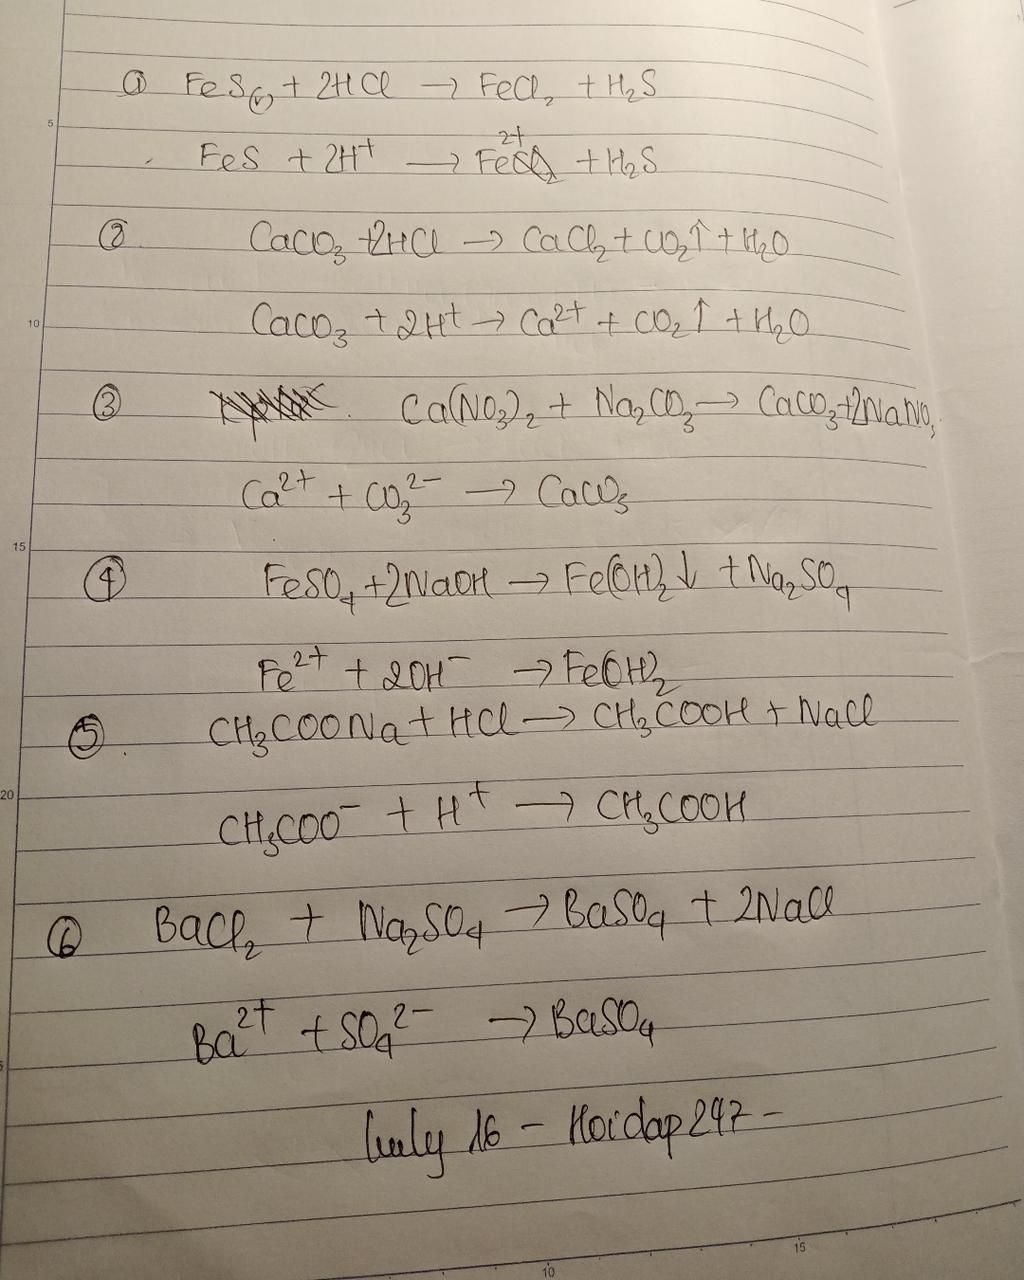 ① FeS(r) + 2HCl → FeCl₂ + H₂S
FeS + 2H⁺ → Fe²⁺ + H₂S
② CaCO₃ + 2HCl → CaCl₂ + CO₂↑ + H₂O
CaCO₃ + 2H⁺ → Ca²⁺ + CO₂↑ + H₂O
③ Ca(NO₃)₂ + Na₂CO₃ → CaCO₃ + 2NaNO₃
Ca²⁺ + CO₃²⁻ → CaCO₃
④ FeSO₄ + 2NaOH → Fe(OH)₂↓ + Na₂SO₄
Fe²⁺ + 2OH⁻ → Fe(OH)₂
⑤ CH₃COONa + HCl → CH₃COOH + NaCl
CH₃COO⁻ + H⁺ → CH₃COOH
⑥ BaCl₂ + Na₂SO₄ → BaSO₄ + 2NaCl
Ba²⁺ + SO₄²⁻ → BaSO₄
16 – Hoidap247 –
5
10
15
20
10
15